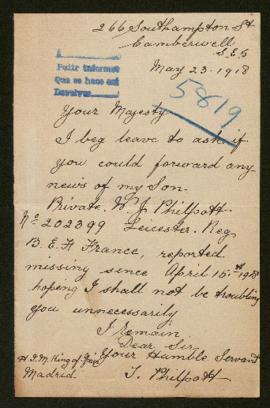 266 Southampton St
Camberwell
S.E.5
May 23. 1918
Pedir informes
Que se hace así
Devolver
5819
Your Majesty
I beg leave to ask if
you could forward any
news of my Son.
Private. W J Philpott
No 202399 Leicester. Reg
B. E. F France, reported
missing since April 15th 1918
hopeing I shall not be troubling
you unnecessarily
I Remain
Dear Sir
Your Humble Servant
H. I. M. King of
Madrid.
T. Philpott